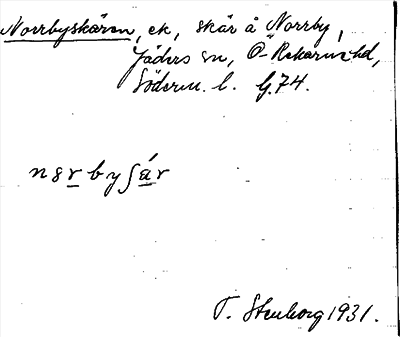 Norrbyskären, ek, skär å Norrby,
Jäders sn, Ö-Rekarne hd,
Söderm. l. G.74.
n8rbyʃár
T. Stenborg 1931.